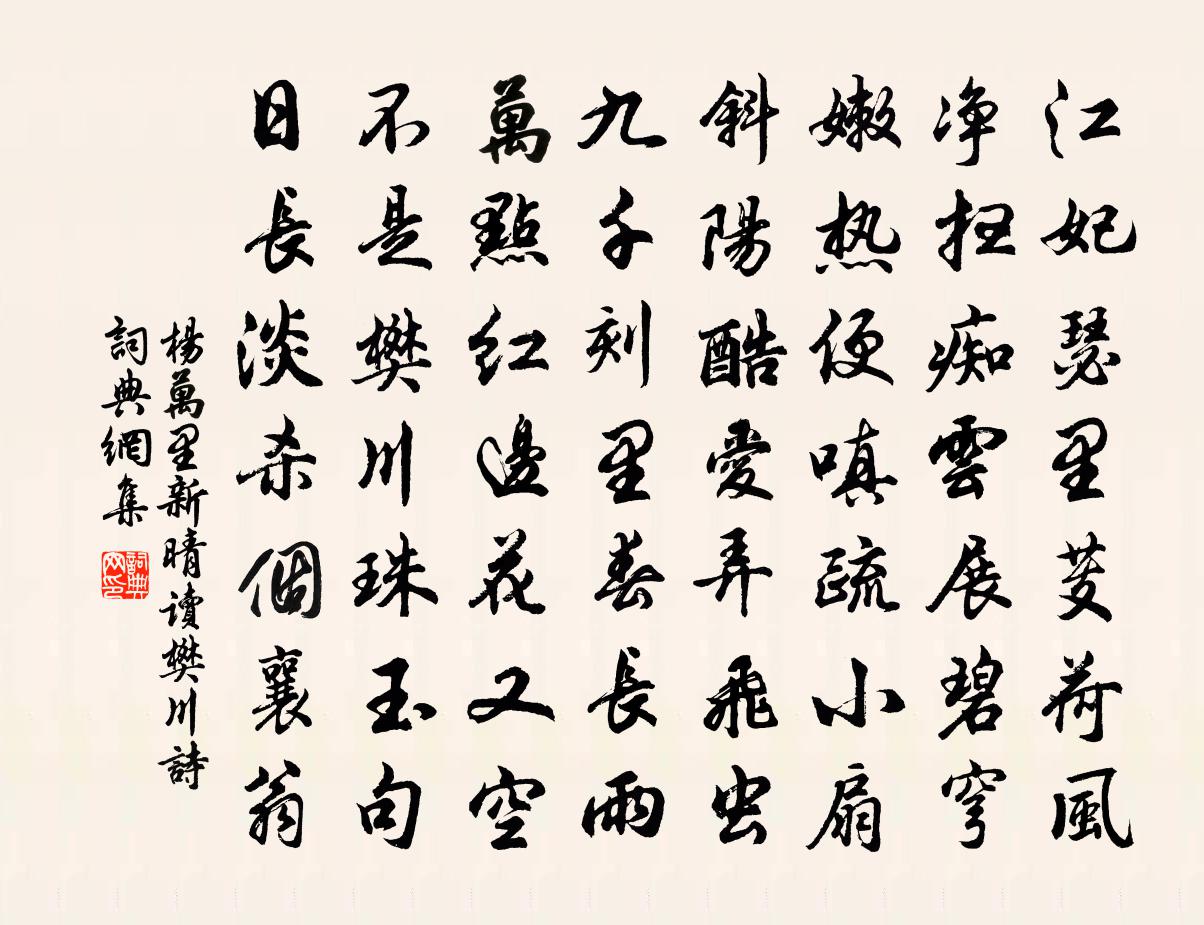 江妃瑟里芰荷風
净扫痴雲展碧穹
嫩热便嗔疏小扇
斜陽酷愛弄飛虫
九千刻里春長雨
萬點红邊花又空
不是樊川珠玉句
日長淡杀個襄翁
楊萬里新晴讀樊川詩
詞典網集
詞典
网印